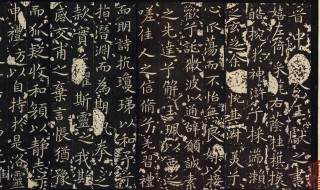 晉中書令王獻之書
嬉左倚采旄右蔭桂旗攘
皓腕於神滸兮采湍瀨
之玄芝余情悅其淑美兮
心振蕩而不怡無良媒以接
歡兮託微波以通辭願誠素
之先達兮解玉珮以要之
嗟佳人之信脩兮羌習禮
而明詩抗瓊珶以和予兮
指潛淵而為期執拳拳之
款實兮懼斯靈之我欺
感交甫之棄言悵猶豫
而狐疑收和顏以靜志兮
申禮防以自持於是洛靈